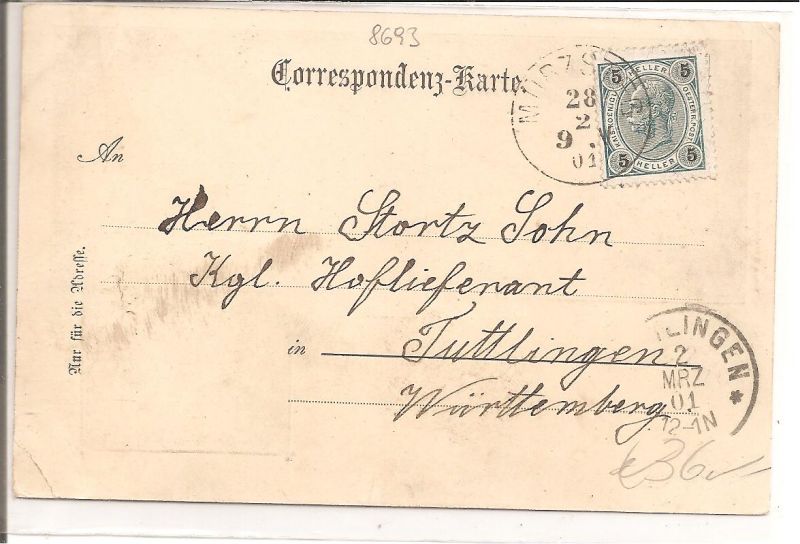 8693
Correspondenz-Karte.
MÜRZS
28
2
9
01
5 5
HELLER
KAIS. KOENIGL. OESTERR. POST
5 5
HELLER
An
Herrn Stortz Sohn
Kgl. Hoflieferant
in Tuttlingen
Württemberg
Nur für die Adresse.
TLINGEN
2
MRZ
01
12-1N
36